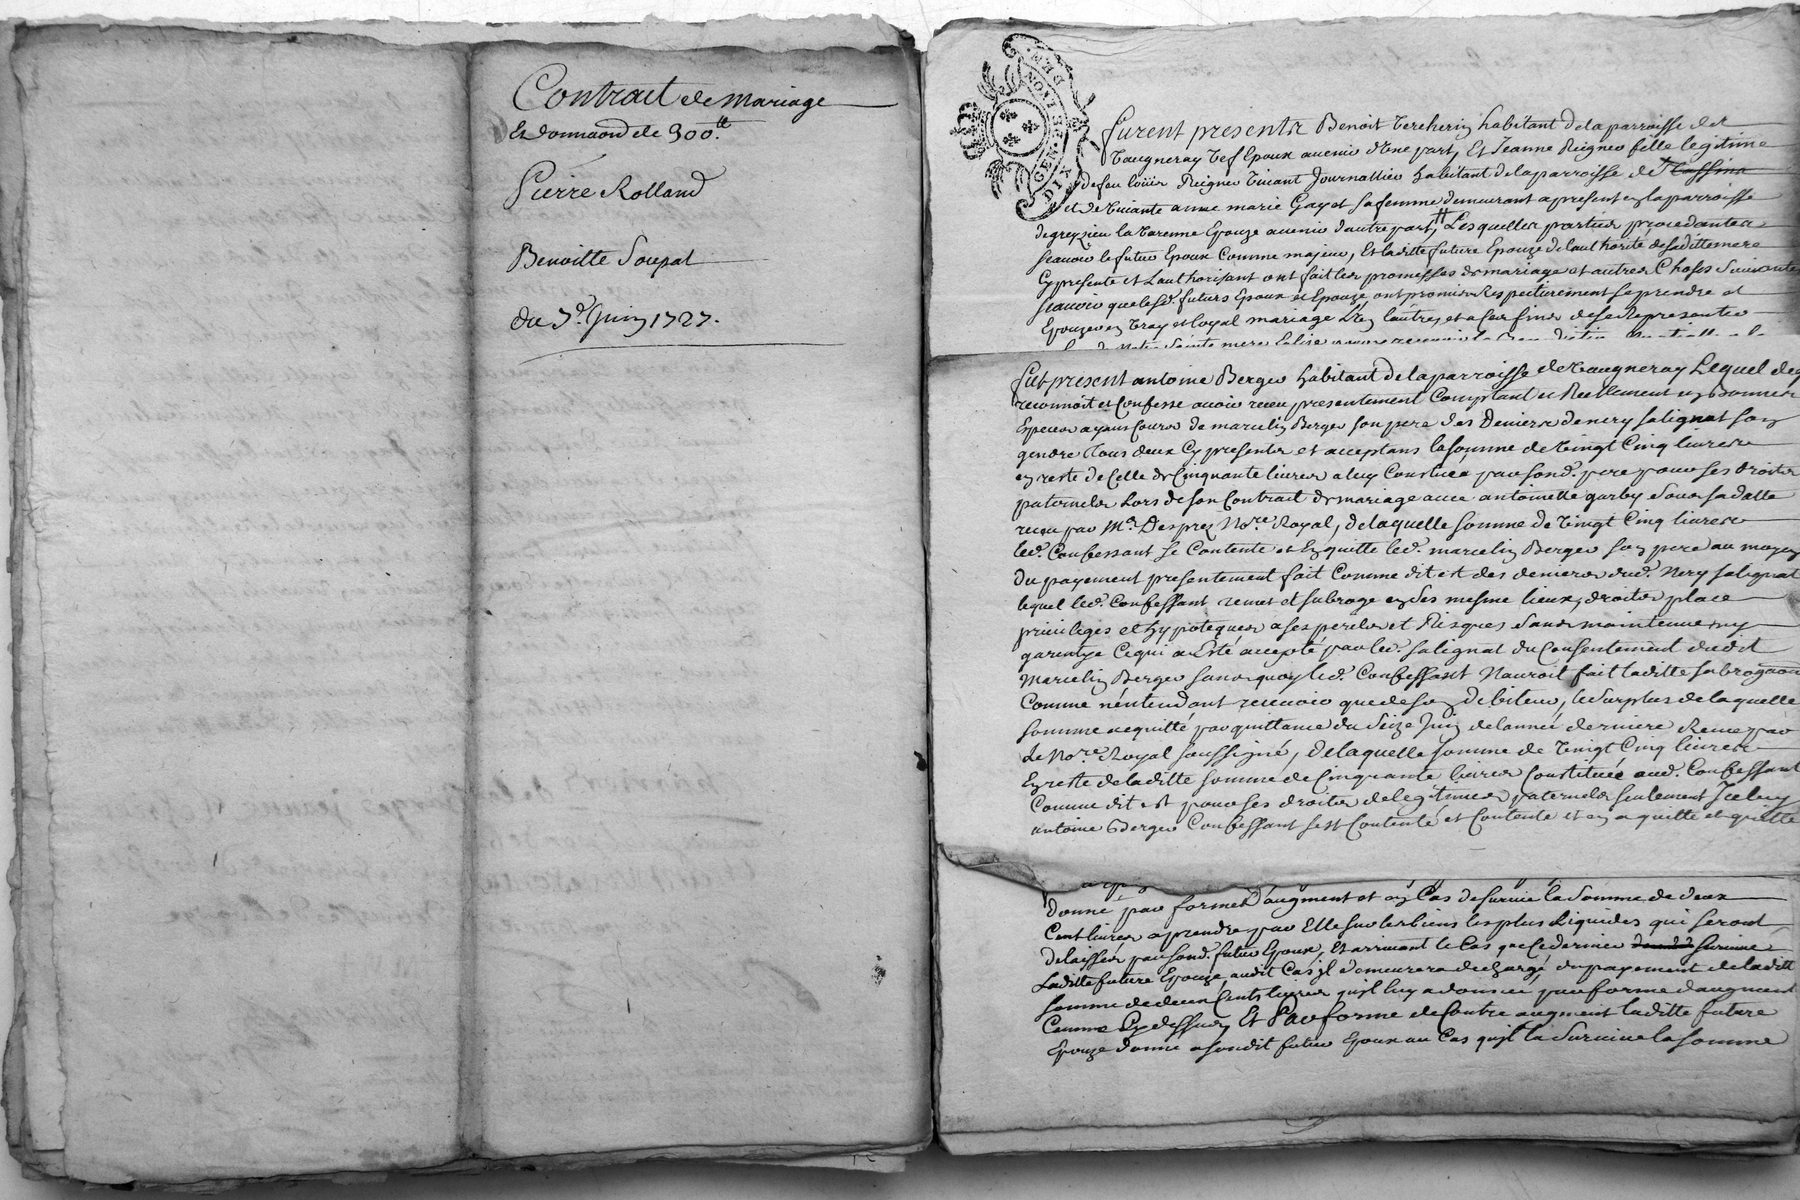 Contract de mariage
Et donnaõn de 300.tt
Pierre Rolland
Benoitte Soupat
du 7.e Juin 1727.
GEN. DE LYON. DIX DEN.
furent presents Benoit habitant de la parroisse de
Vaugneray vef Epoux avenir d'Une part, Et Jeanne Reigner fille legitime
de feu Reigner vivant Journallier habitant de la parroisse de
et de vivante anne marie Gayet sa femme demeurant a present en la parroisse
de grezieu la varenne Epouze avenir d'autre part, Lesquelles parties procedantes
scavoir le futur Epoux Comme majeur, Et laditte future Epouze de l'authorité de saditte mere
Cy presente et L'authorisant ont fait les promesses de mariage et autres Choses Suivantes
scavoir que lesd. futurs Epoux et Epouze ont promis Respectivement se prendre et
Epouzer en vray et loyal mariage L'un l'autre, et a ces fins de se Representer
notre Sainte mere Eglise
fut present antoine Berger habitant de la parroisse de Vaugneray Lequel de
reconnoit et Confesse avoir receu presentement Comptant et Reellement en bonnes
Especes ayans Cours de marcelin Berger son pere des Deniers de nery salignat son
gendre tous deux Cy presents et aceptans la somme de vingt Cinq livres
en reste de Celle de Cinquante livres a luy Constituée par sond. pere pour ses droits
paternels Lors de son Contract de mariage avec antoinette garby Sous sa datte
receu par M.e Desprez No.re Royal, de laquelle somme de vingt Cinq livres
led. Confessant se Contente et En quitte led. marcelin Berger son pere au moyen
du payement presentement fait Comme dit est des deniers dud. Nery salignat
lequel led. Confessant remet et subroge en ses mesme lieux, droits place
privileges et hypoteques a ses perils et Risques Sans maintenue ny
garentye Ce qui a Esté accepté par led. salignat du Consentement dudit
Marcelin Berger sans quoy led. Confessant N'auroit fait laditte subrogaõn
Comme n'entendant recevoir que de son debiteur, le surplus de laquelle
somme acquitté par quittance du Seize Juin de l'année derniere Receue par
Le No.re Royal soussigné, de laquelle somme de vingt Cinq livres
En reste de laditte somme de Cinquante livres Constituée aud. Confessant
Comme dit est pour ses droits de legitimes paternels seulement Iceluy
antoine Berger Confessant s'est Contenté et Contente et en a quitté et quitte
donné par forme d'augment et en Cas de survie la somme de deux
Cent livres a prendre par Elle sur les biens les plus Liquides qui seront
delaissés par sond. futur Epoux, Et arrivant le Cas que Ce dernier survive
Laditte future Epouze, audit Cas il demeurera dechargé du payement de laditte
somme de deux Cents livres qu'il luy a donnée par forme d'augment
Comme Cy dessus, Et Par forme de Contre augment laditte future
Epouze donne a sondit futur Epoux au Cas qu'il la Survive la somme